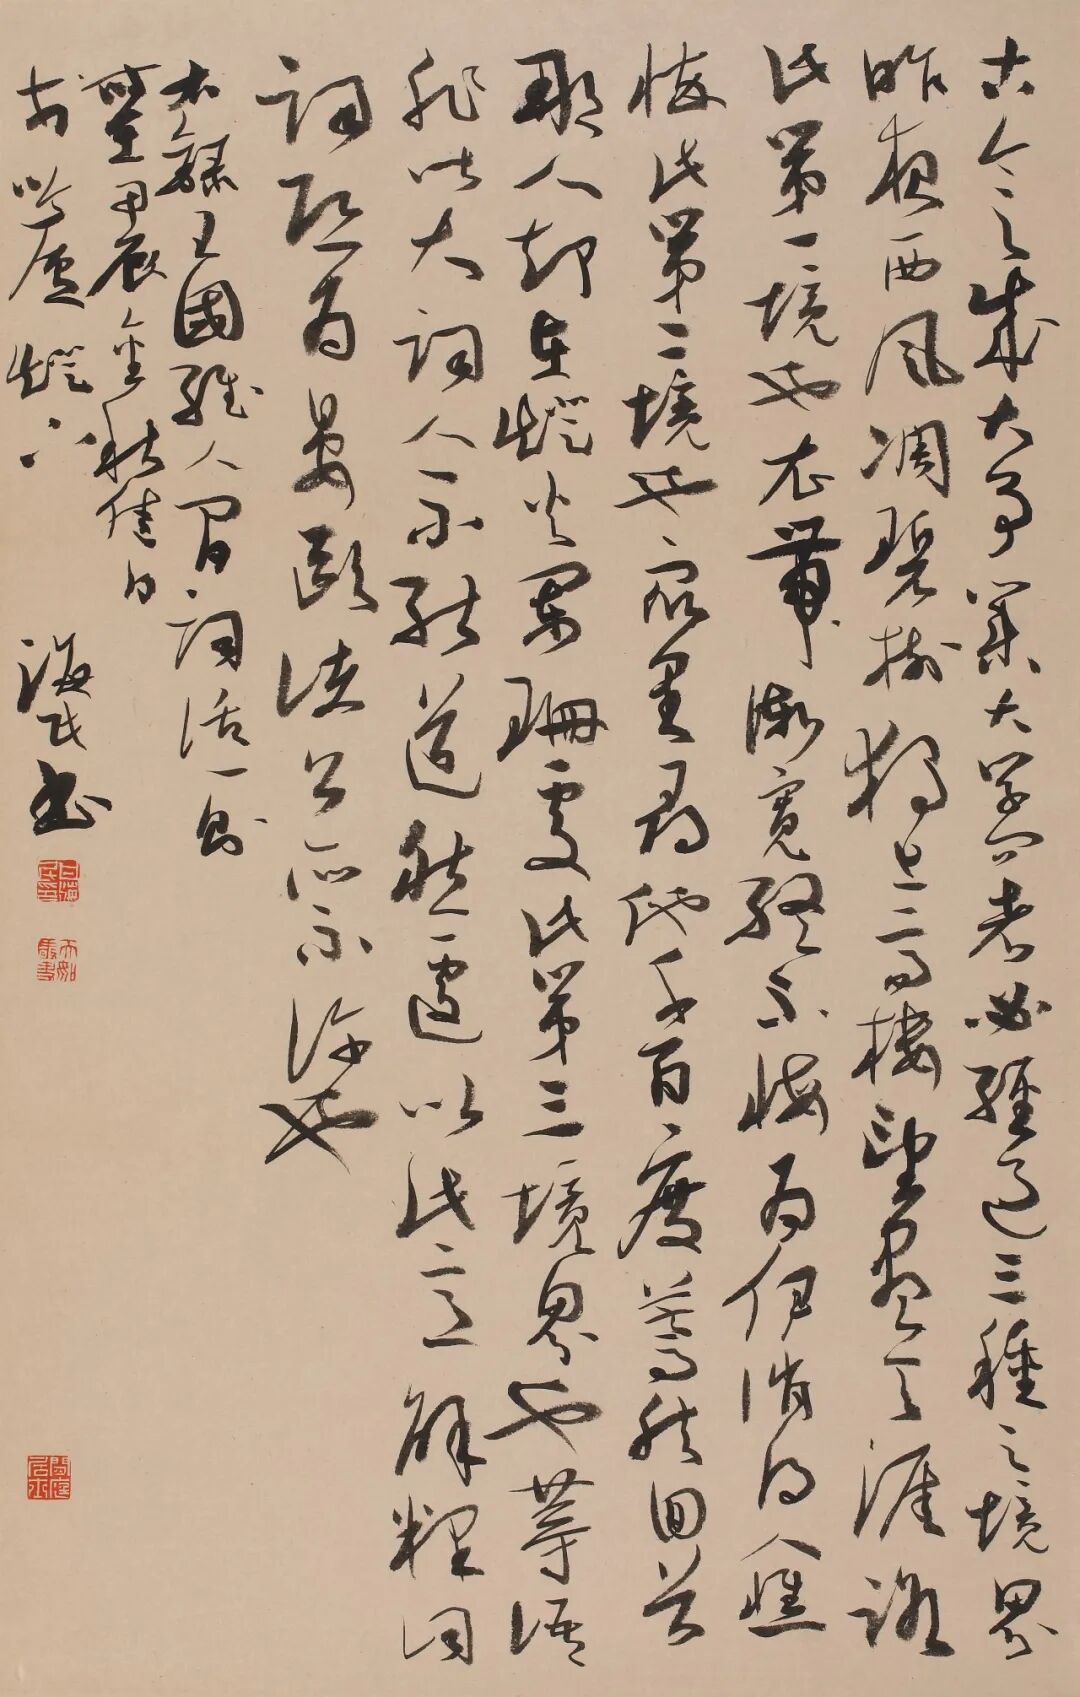 古今之成大事業大學問者必經過三種之境界
昨夜西風凋碧樹獨上高樓望盡天涯路
此第一境也衣帶漸寬終不悔為伊消得人憔
悴此第二境也衆里尋他千百度驀然回首
那人却在燈火闌珊處此第三境界也等語
非大詞人不能道然遽以此意解釋
詞恐為晏歐諸公所不許也
右錄王國維人間詞話一則
甲辰金秋佳日
於吟廬燈下 海民書
白海民印